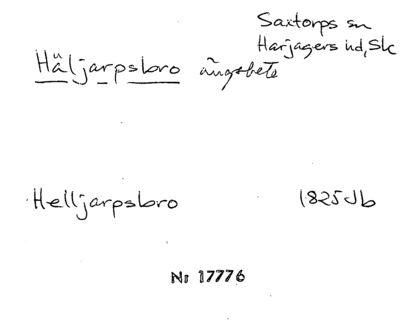 Saxtorps sn
Harjagers hd, Sk
Häljarpsbro ängsbete
Helljarpsbro 1825 Jb
Nr 17776